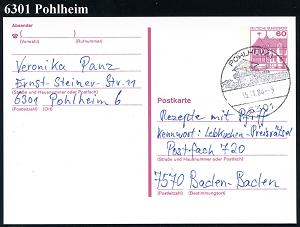 6301 Pohlheim
Absender
(Vorwahl) (Rufnummer)
Veronika Panz
Ernst-Steiner-Str. 11
(Straße und Hausnummer oder Postfach)
6301 Pohlheim 6
(Postleitzahl) (Ort)
DEUTSCHE BUNDESPOST
60
POHLHEIM 1
6301
Postkarte
Rezepte mit Pfiff
Kennwort: Lebkuchen-Preisrätsel
Postfach 720
(Straße und Hausnummer oder Postfach)
7570 Baden-Baden
(Postleitzahl) (Bestimmungsort)